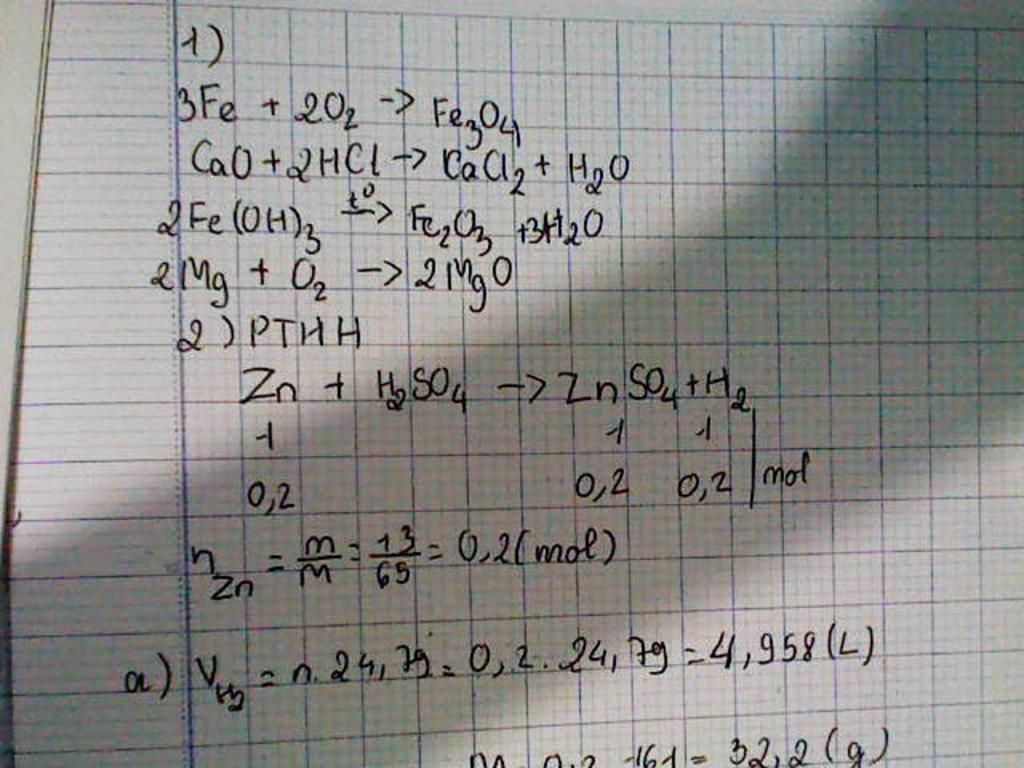 1)
3Fe + 2O₂ -> Fe₃O₄
CaO + 2HCl -> CaCl₂ + H₂O
2Fe(OH)₃ t⁰-> Fe₂O₃ + 3H₂O
2Mg + O₂ -> 2MgO
2) PTHH
Zn + H₂SO₄ -> ZnSO₄ + H₂
1 1 1
0,2 0,2 0,2 | mol
n_Zn = m/M = 13/65 = 0,2 (mol)
a) V_H₂ = n. 24,79 = 0,2. 24,79 = 4,958 (L)
0,2 . 161 = 32,2 (g)